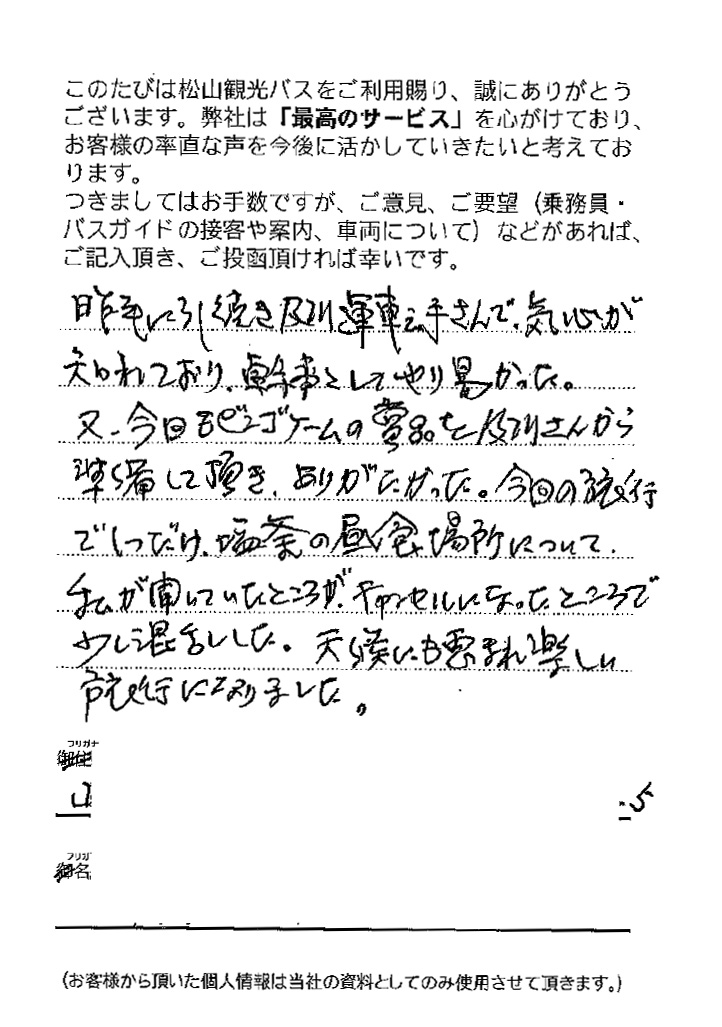 このたびは松山観光バスをご利用賜り、誠にありがとう
ございます。弊社は「最高のサービス」を心がけており、
お客様の率直な声を今後に活かしていきたいと考えてお
ります。
つきましてはお手数ですが、ご意見、ご要望（乗務員・
バスガイドの接客や案内、車両について）などがあれば、
ご記入頂き、ご投函頂ければ幸いです。
昨年に引続き及川運転手さんで、気心が
知れており、幹事としてやり易かった。
又、今回もビンゴゲームの賞品を及川さんから
準備して頂き、ありがたかった。今回の旅行
で1つだけ、塩釜の昼食場所について、
私が聞いていたところが、キャンセルになったところで
少し混乱した。天候にも恵まれ楽しい
旅行になりました。
フリガナ
御住
フリガ
御名
（お客様から頂いた個人情報は当社の資料としてのみ使用させて頂きます。）